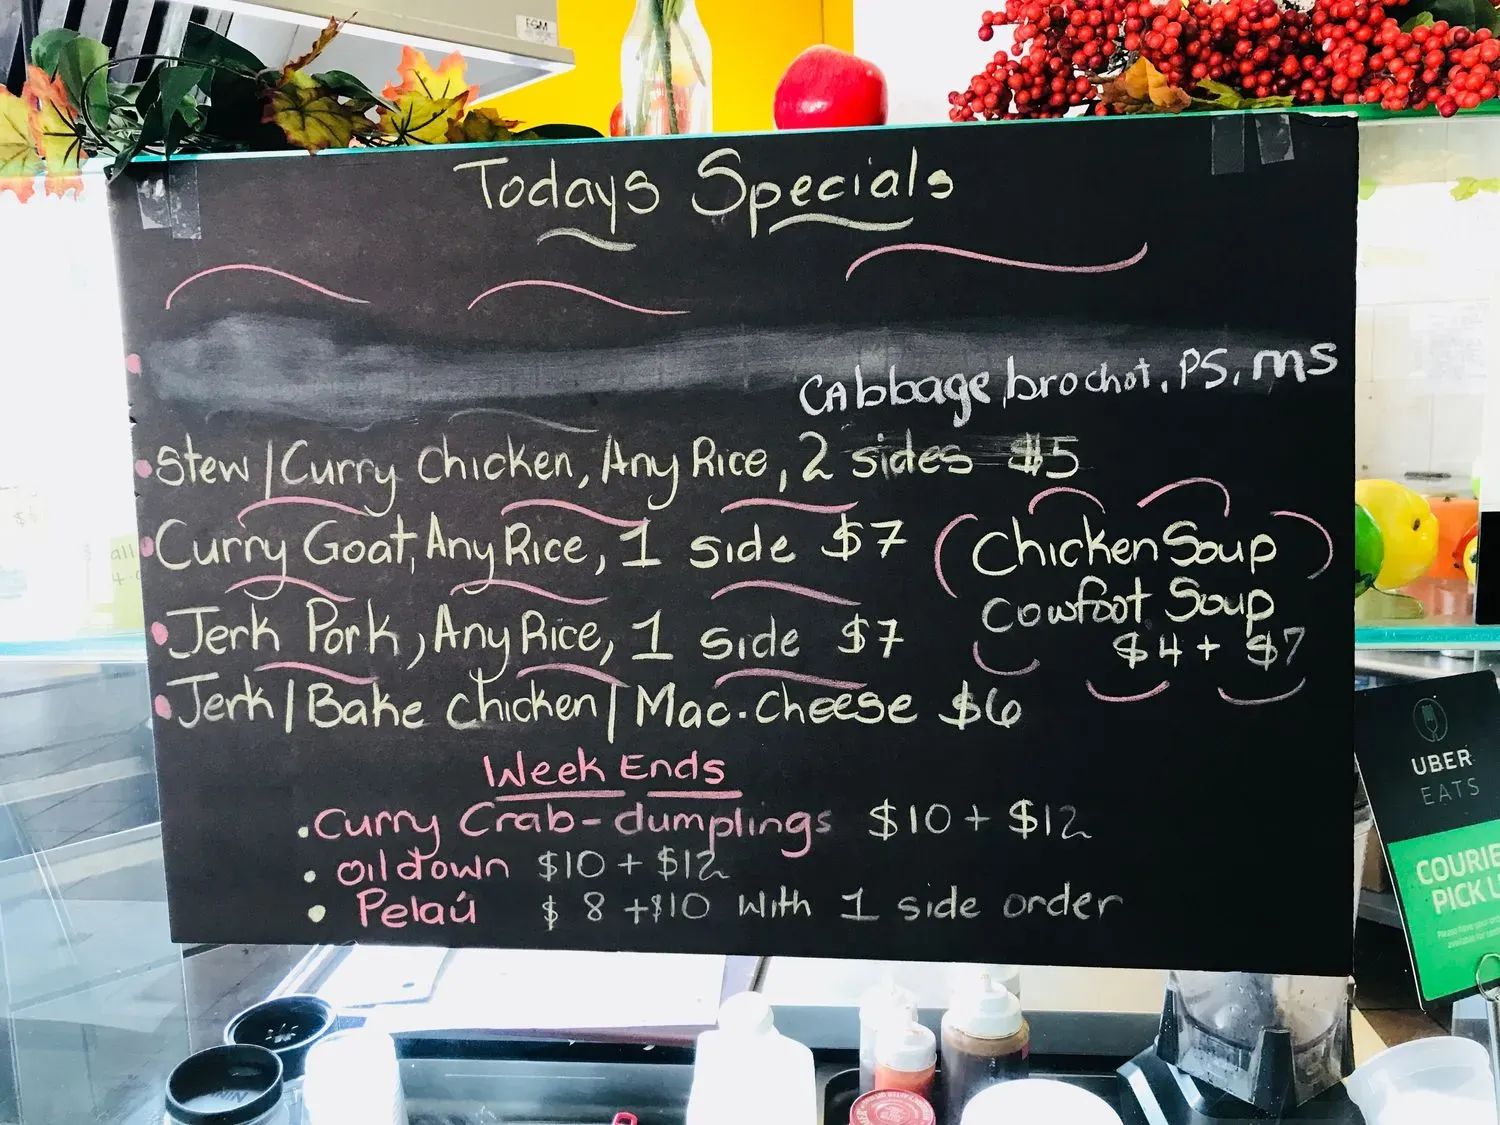 FSM
Todays Specials
CAbbage, brochot, PS, ms
Stew/Curry Chicken, Any Rice, 2 sides $5
Curry Goat, Any Rice, 1 side $7
(Chicken Soup)
Cowfoot Soup
$4 + $7
Jerk Pork, Any Rice, 1 side $7
Jerk/Bake Chicken/Mac.Cheese $6
Week Ends
Curry Crab-dumplings $10 + $12
oildown $10 + $12
Pelaú $8 + $10 with 1 side order
UBER
EATS
COURIE
PICK U